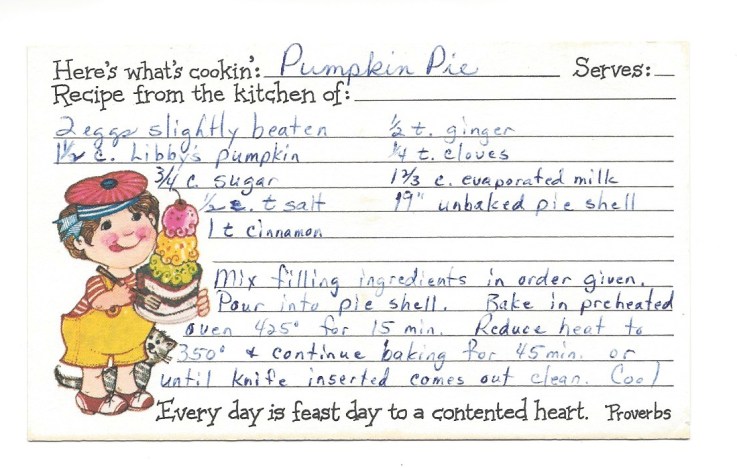 Here's what's cookin': Pumpkin Pie Serves:
Recipe from the kitchen of:
2 eggs slightly beaten ½ t. ginger
1½ c. Libby's pumpkin ¼ t. cloves
¾ c. sugar 1⅔ c. evaporated milk
½ t salt 1 9" unbaked pie shell
1 t cinnamon
Mix filling ingredients in order given.
Pour into pie shell. Bake in preheated
oven 425° for 15 min. Reduce heat to
350° & continue baking for 45 min. or
until knife inserted comes out clean. Cool
Every day is feast day to a contented heart. Proverbs